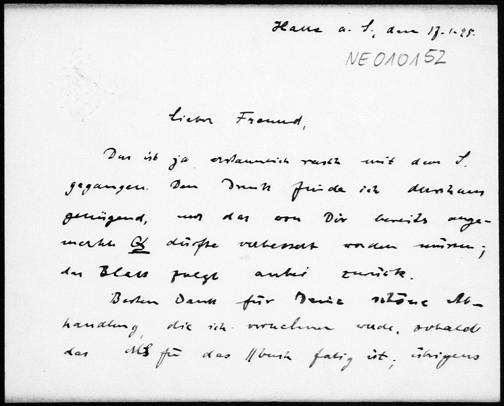 Halle a. S., den 17.1.25.
NE010152
Lieber Freund,
Das ist ja erstaunlich rasch mit dem S.
gegangen. Den Druck finde ich durchaus
genügend, nur das von Dir bereits ange-
merkte dürfte verbessert werden müssen;
das Blatt folgt anbei zurück.
Besten Dank für Deine schöne Ab-
handlung, die ich vornehmen werde, sobald
das MS für das fertig ist; übrigens